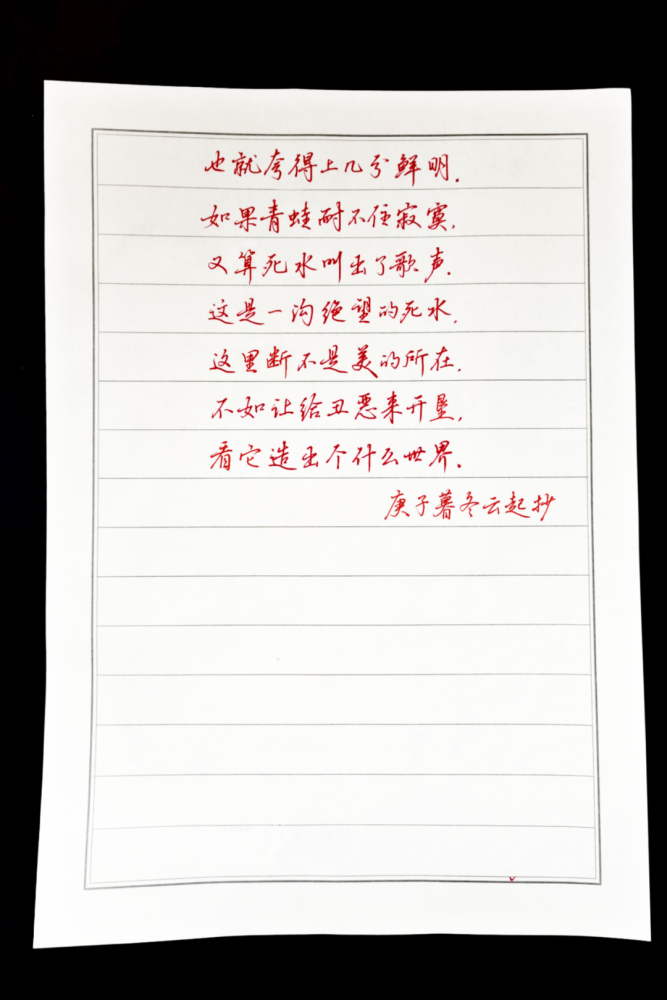 也就夸得上几分鲜明.
如果青蛙耐不住寂寞,
又算死水叫出了歌声.
这是一沟绝望的死水,
这里断不是美的所在,
不如让给丑恶来开垦,
看它造出个什么世界.
庚子暮冬云起抄